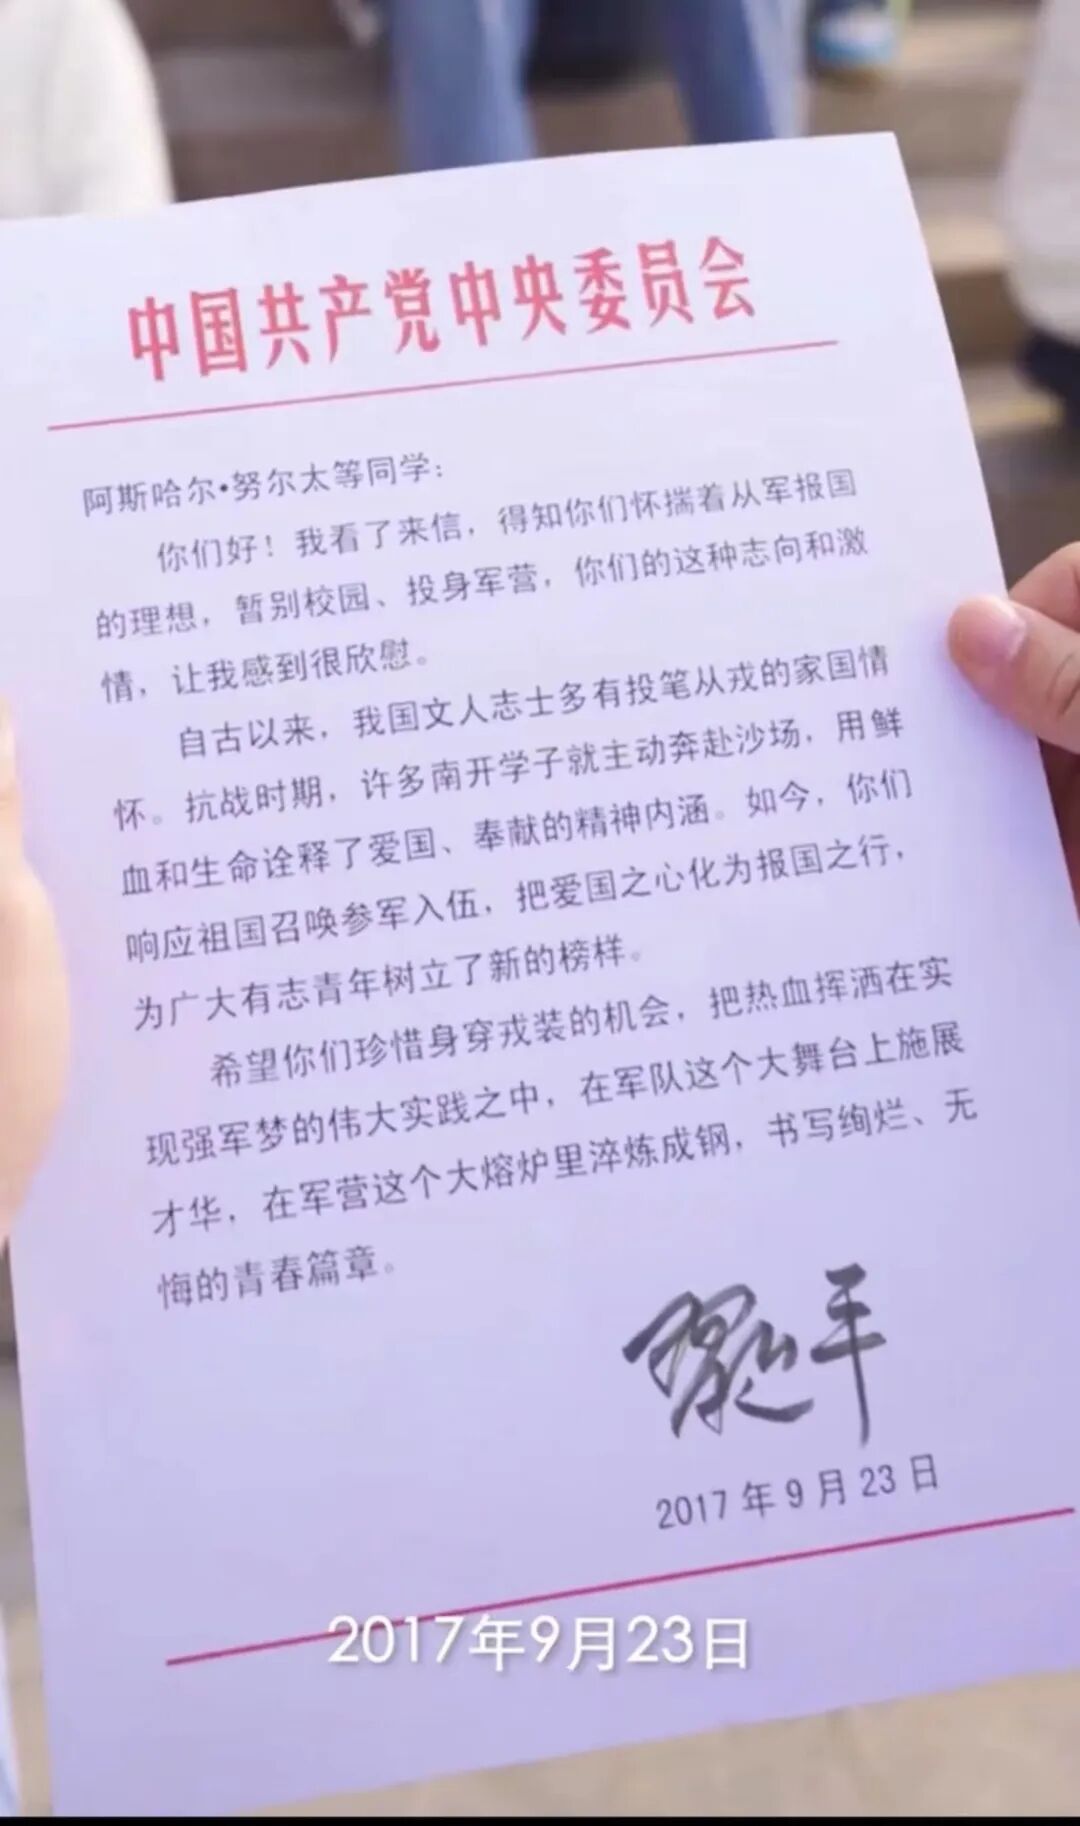 中国共产党中央委员会
阿斯哈尔·努尔太等同学：
你们好！我看了来信，得知你们怀揣着从军报国
的理想，暂别校园、投身军营，你们的这种志向和激
情，让我感到很欣慰。
自古以来，我国文人志士多有投笔从戎的家国情
怀。抗战时期，许多南开学子就主动奔赴沙场，用鲜
血和生命诠释了爱国、奉献的精神内涵。如今，你们
响应祖国召唤参军入伍，把爱国之心化为报国之行，
为广大有志青年树立了新的榜样。
希望你们珍惜身穿戎装的机会，把热血挥洒在实
现强军梦的伟大实践之中，在军队这个大舞台上施展
才华，在军营这个大熔炉里淬炼成钢，书写绚烂、无
悔的青春篇章。
习近平
2017年9月23日
2017年9月23日